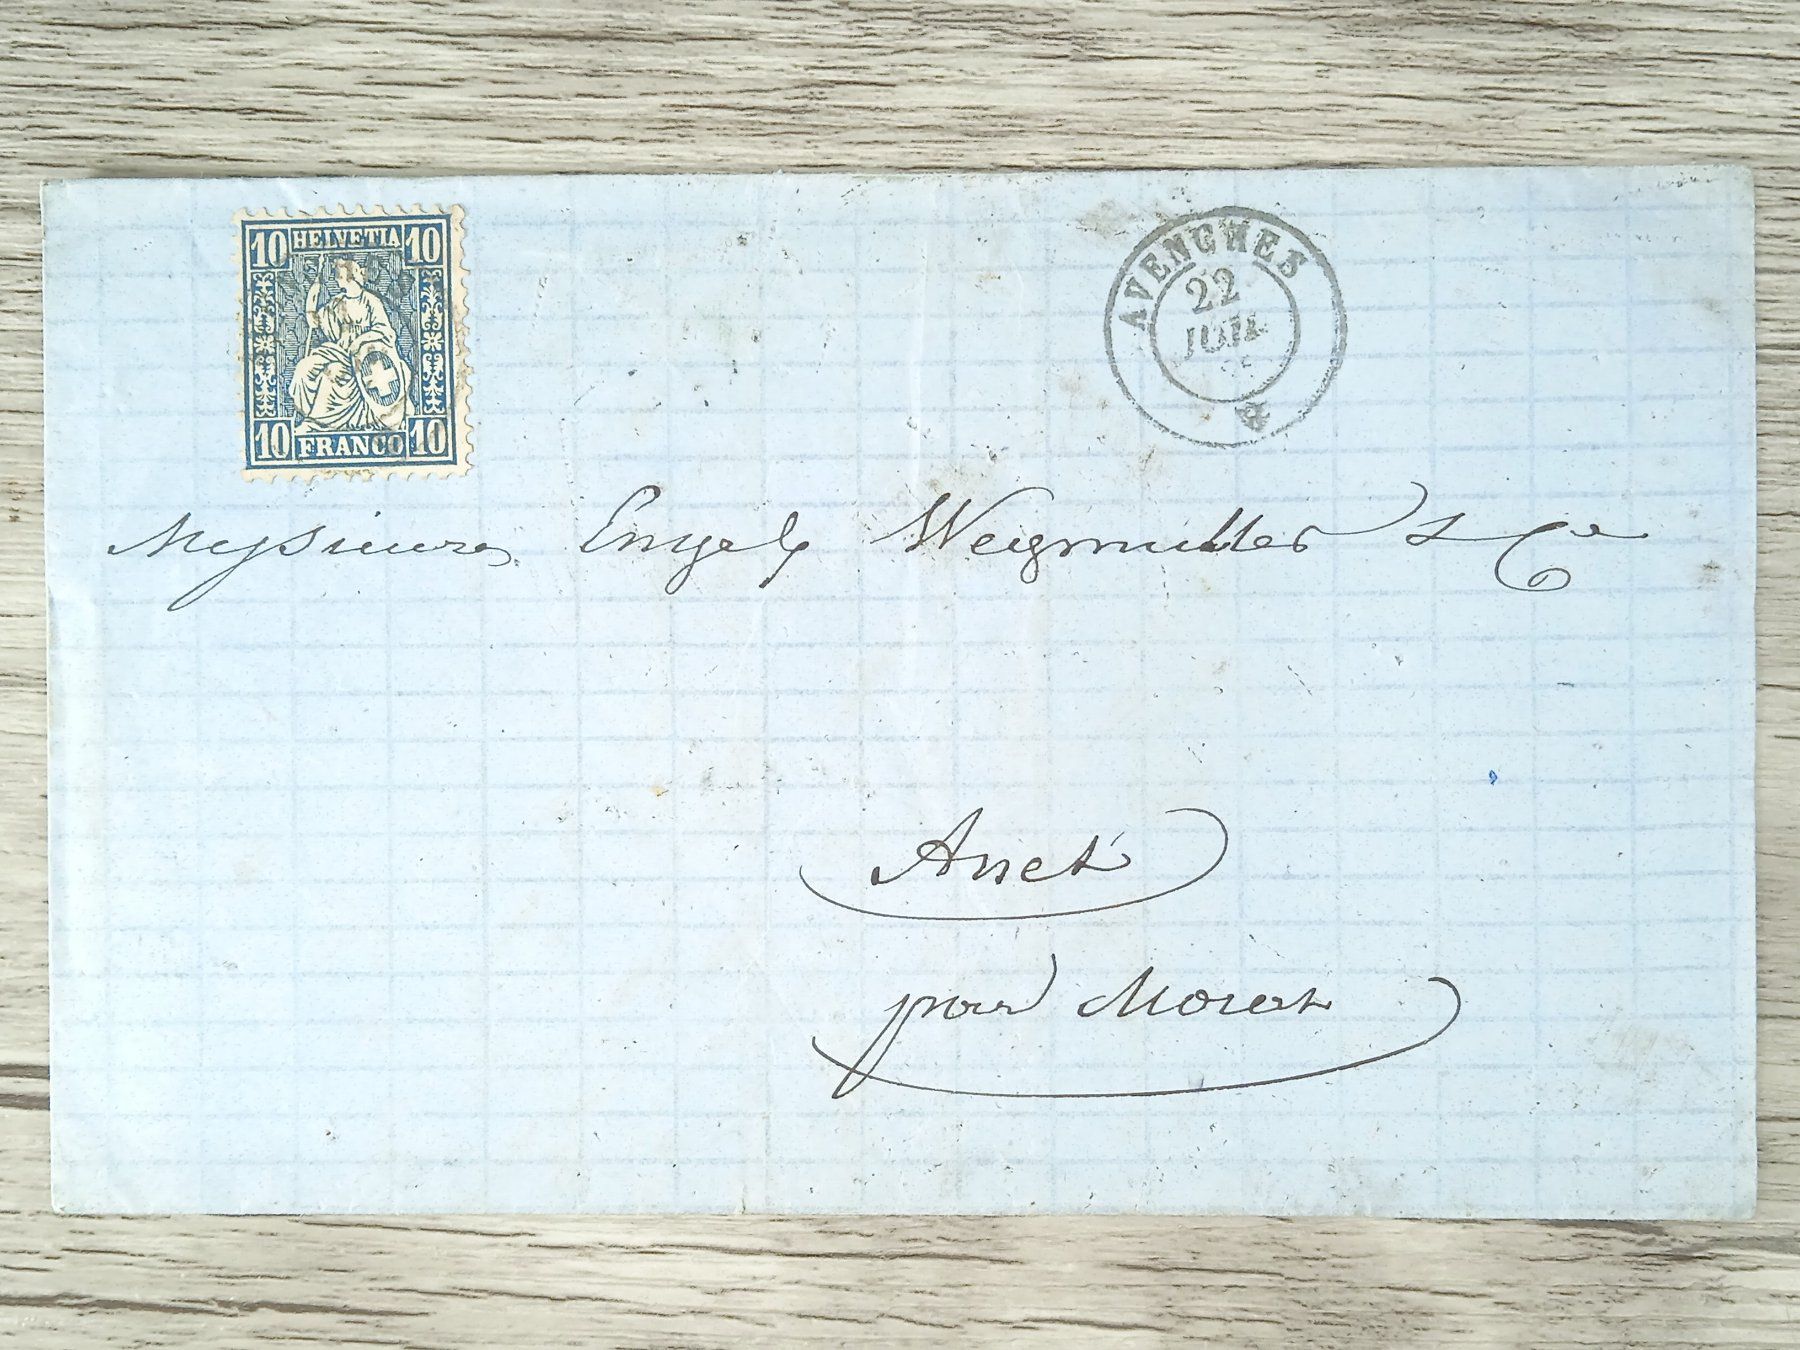 10 HELVETIA 10
10 FRANCO 10
AVENCHES
22
JUIL
Messieurs Engel, Weigmuller & Cie
Anet
pour Morat